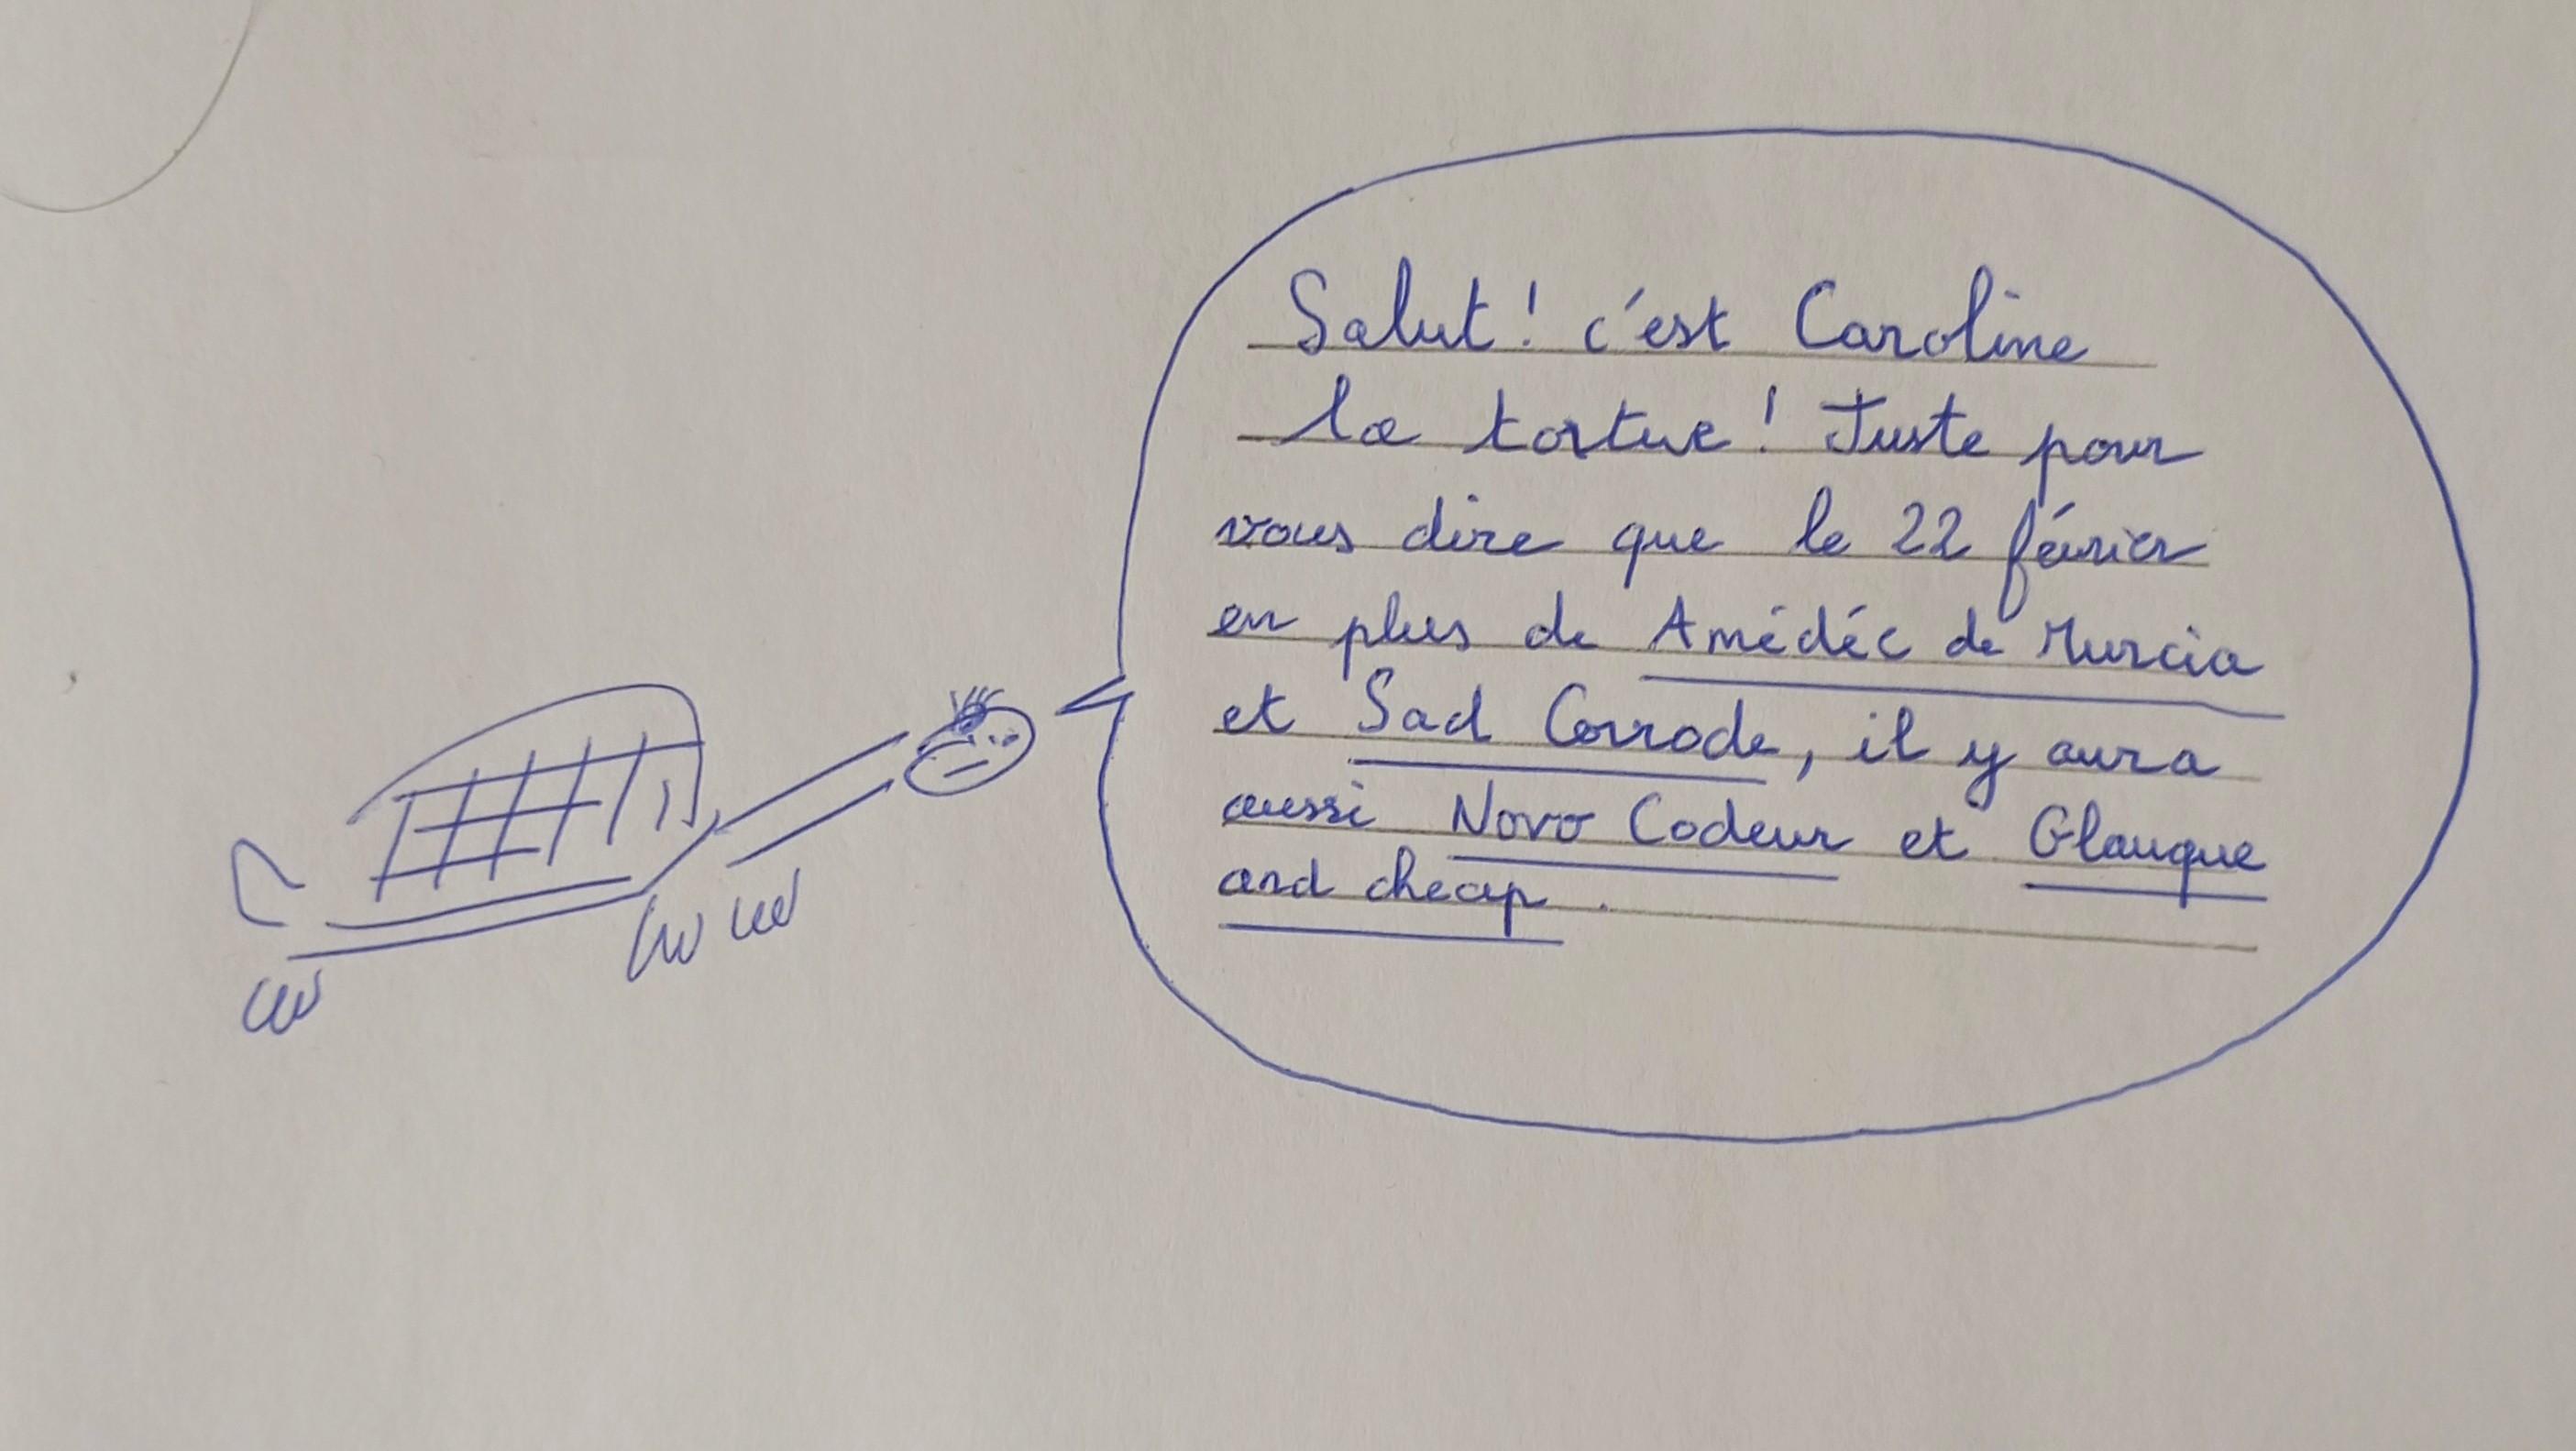 Salut ! c'est Caroline
la tortue ! Juste pour
vous dire que le 22 février
en plus de Amédéc de Murcia
et Sad Corrode, il y aura
aussi Novo Codeur et Glauque
and cheap .